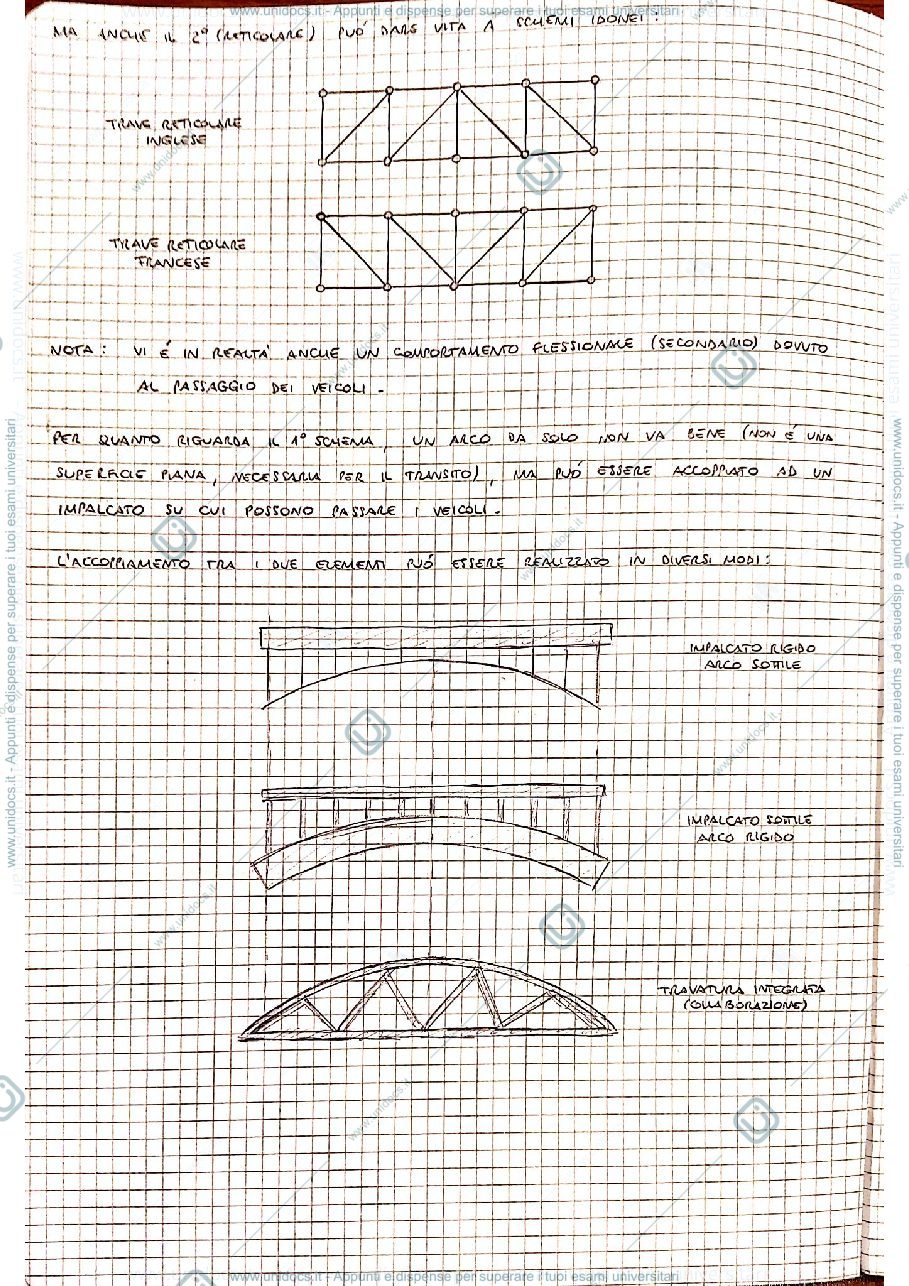 www.unidocs.it - Appunti e dispense per superare i tuoi esami universitari
MA ANCHE IL 2° (RETICOLARE) PUÓ DARE VITA A SCHEMI IDONEI:
TRAVE RETICOLARE
INGLESE
TRAVE RETICOLARE
FRANCESE
NOTA: VI É IN REALTA' ANCHE UN COMPORTAMENTO FLESSIONALE (SECONDARIO) DOVUTO
AL PASSAGGIO DEI VEICOLI.
PER QUANTO RIGUARDA IL 1° SCHEMA, UN ARCO DA SOLO NON VA BENE (NON É UNA
SUPERFICIE PIANA, NECESSARIA PER IL TRANSITO), MA PUÓ ESSERE ACCOPPIATO AD UN
IMPALCATO SU CUI POSSONO PASSARE I VEICOLI.
L'ACCOPPIAMENTO TRA I DUE ELEMENTI PUÓ ESSERE REALIZZATO IN DIVERSI MODI:
IMPALCATO RIGIDO
ARCO SOTTILE
IMPALCATO SOTTILE
ARCO RIGIDO
TRAVATURA INTEGRATA
(COLLABORAZIONE)
www.unidocs.it - Appunti e dispense per superare i tuoi esami universitari
www.unidocs.it - Appunti e dispense per superare i tuoi esami universitari
www.unidocs.it - Appunti e dispense per superare i tuoi esami universitari